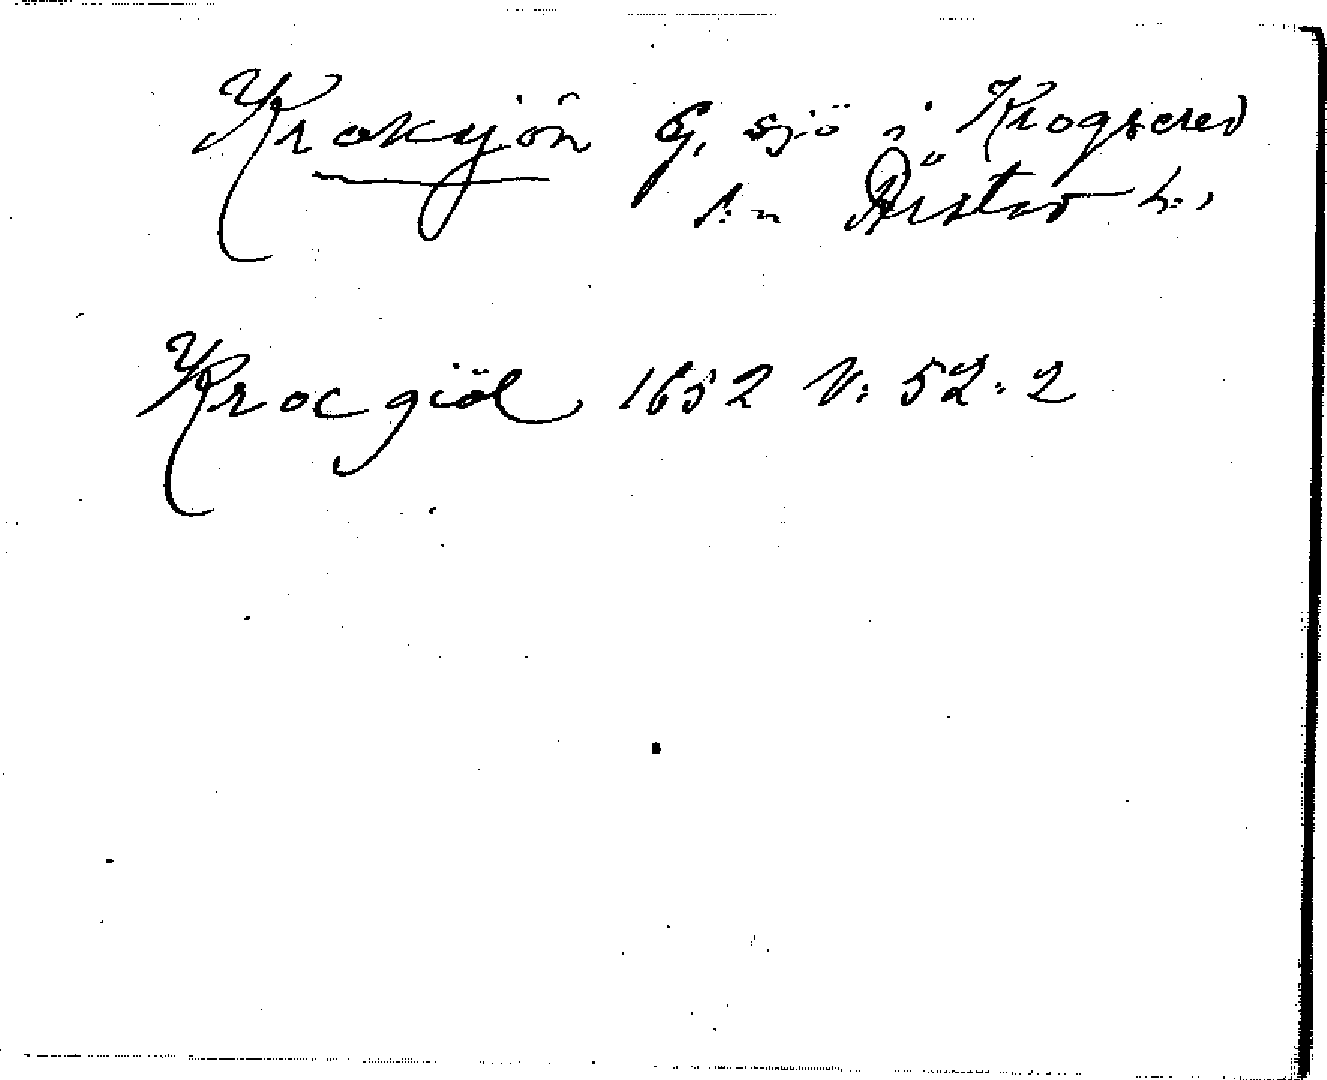 Kroksjön G, sjö i Krogsered
s:n Årstad h.,
Kroc giöl 1652 V: 52: 2